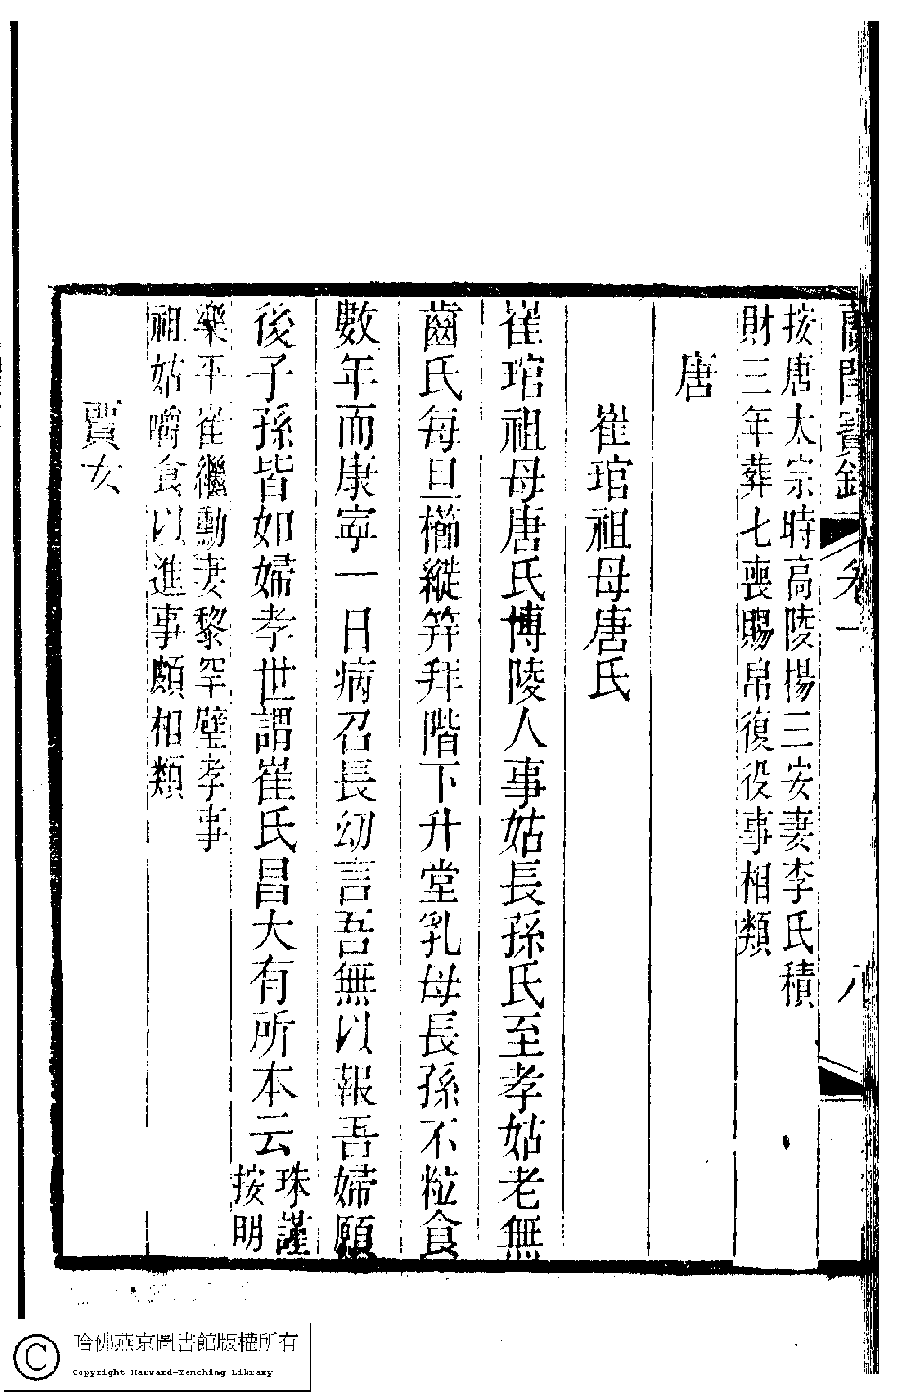 蘭閨寶錄 卷一 八
按唐太宗時高陵楊三安妻李氏積
財三年葬七喪賜帛復役事相類
唐
崔琯祖母唐氏
崔琯祖母唐氏博陵人事姑長孫氏至孝姑老無
齒氏每旦櫛縰笄拜階下升堂乳母長孫不粒食
數年而康寧一日病召長幼言吾無以報吾婦願
後子孫皆如婦孝世謂崔氏昌大有所本云
珠謹
按明
樂平崔繼勳妻黎罕璧孝事
祖姑嚼食以進事頗相類
賈女
哈佛燕京圖書館版權所有
Copyright Harvard-Yenching Library